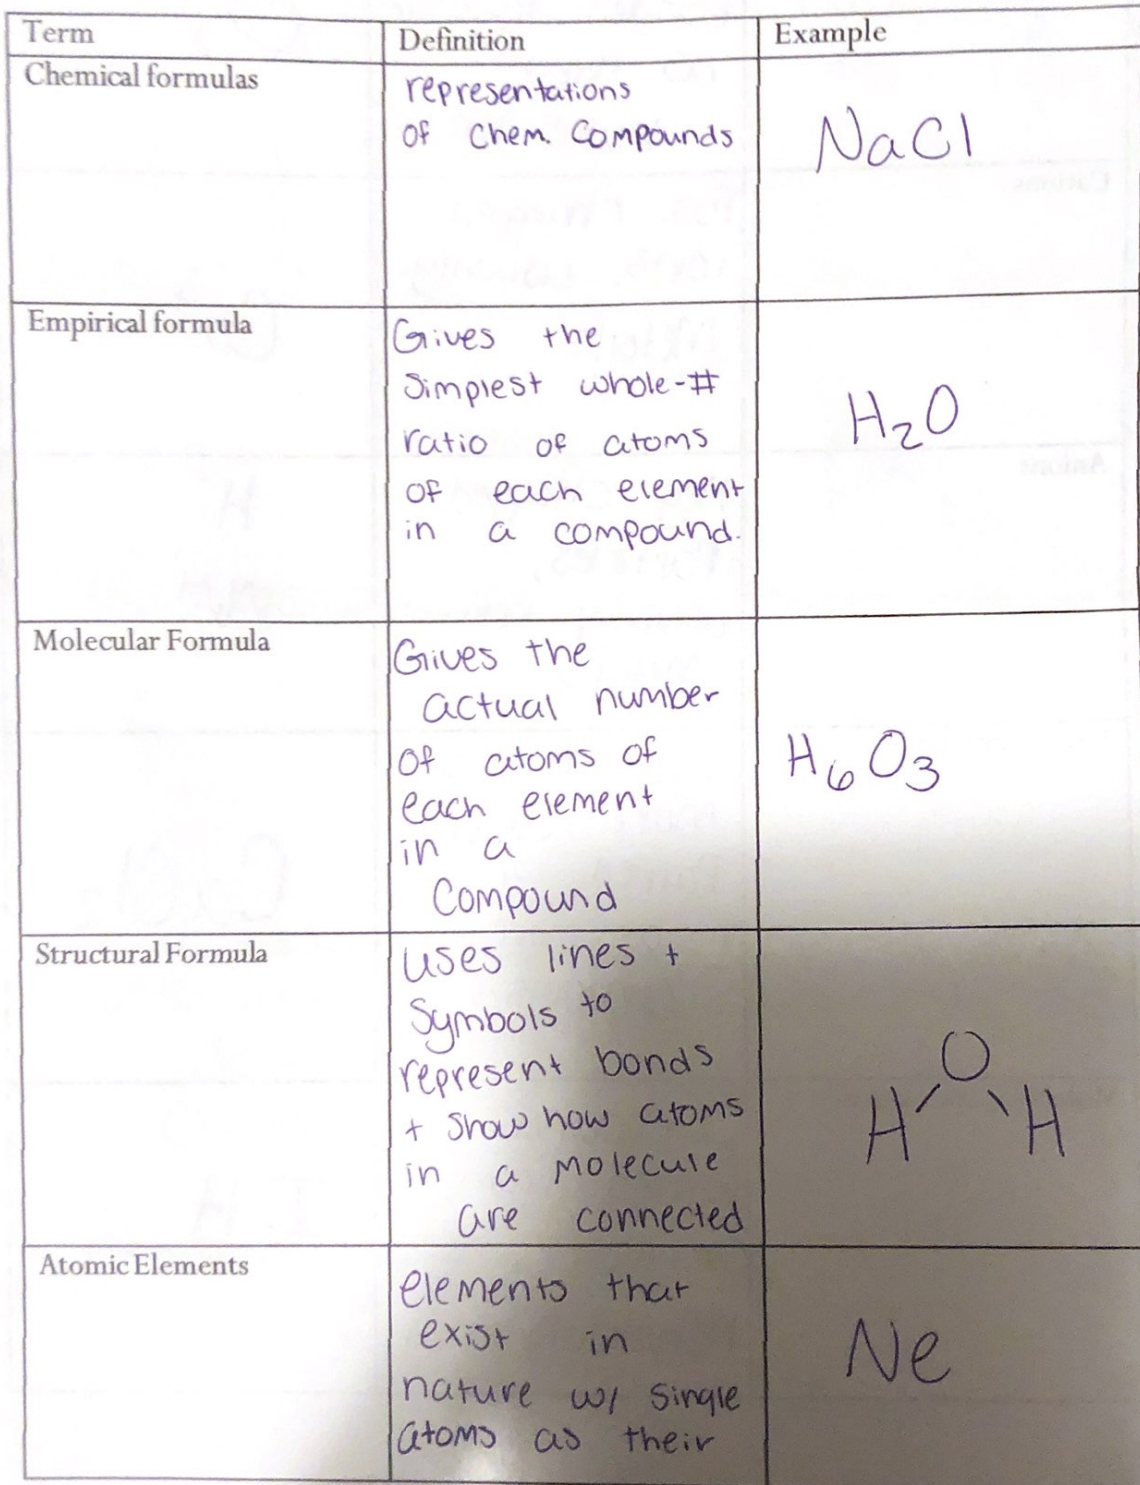 Term
Definition
Example
Chemical formulas
representations
of Chem. Compounds
NaCl
Empirical formula
Gives the
Simplest whole-#
ratio of atoms
of each element
in a compound.
H₂O
Molecular Formula
Gives the
actual number
of atoms of
each element
in a
Compound
H₆O₃
Structural Formula
uses lines +
Symbols to
represent bonds
+ show how atoms
in a molecule
are connected
O
H H
Atomic Elements
elements that
exist in
nature w/ single
atoms as their
Ne
Cations
Anions